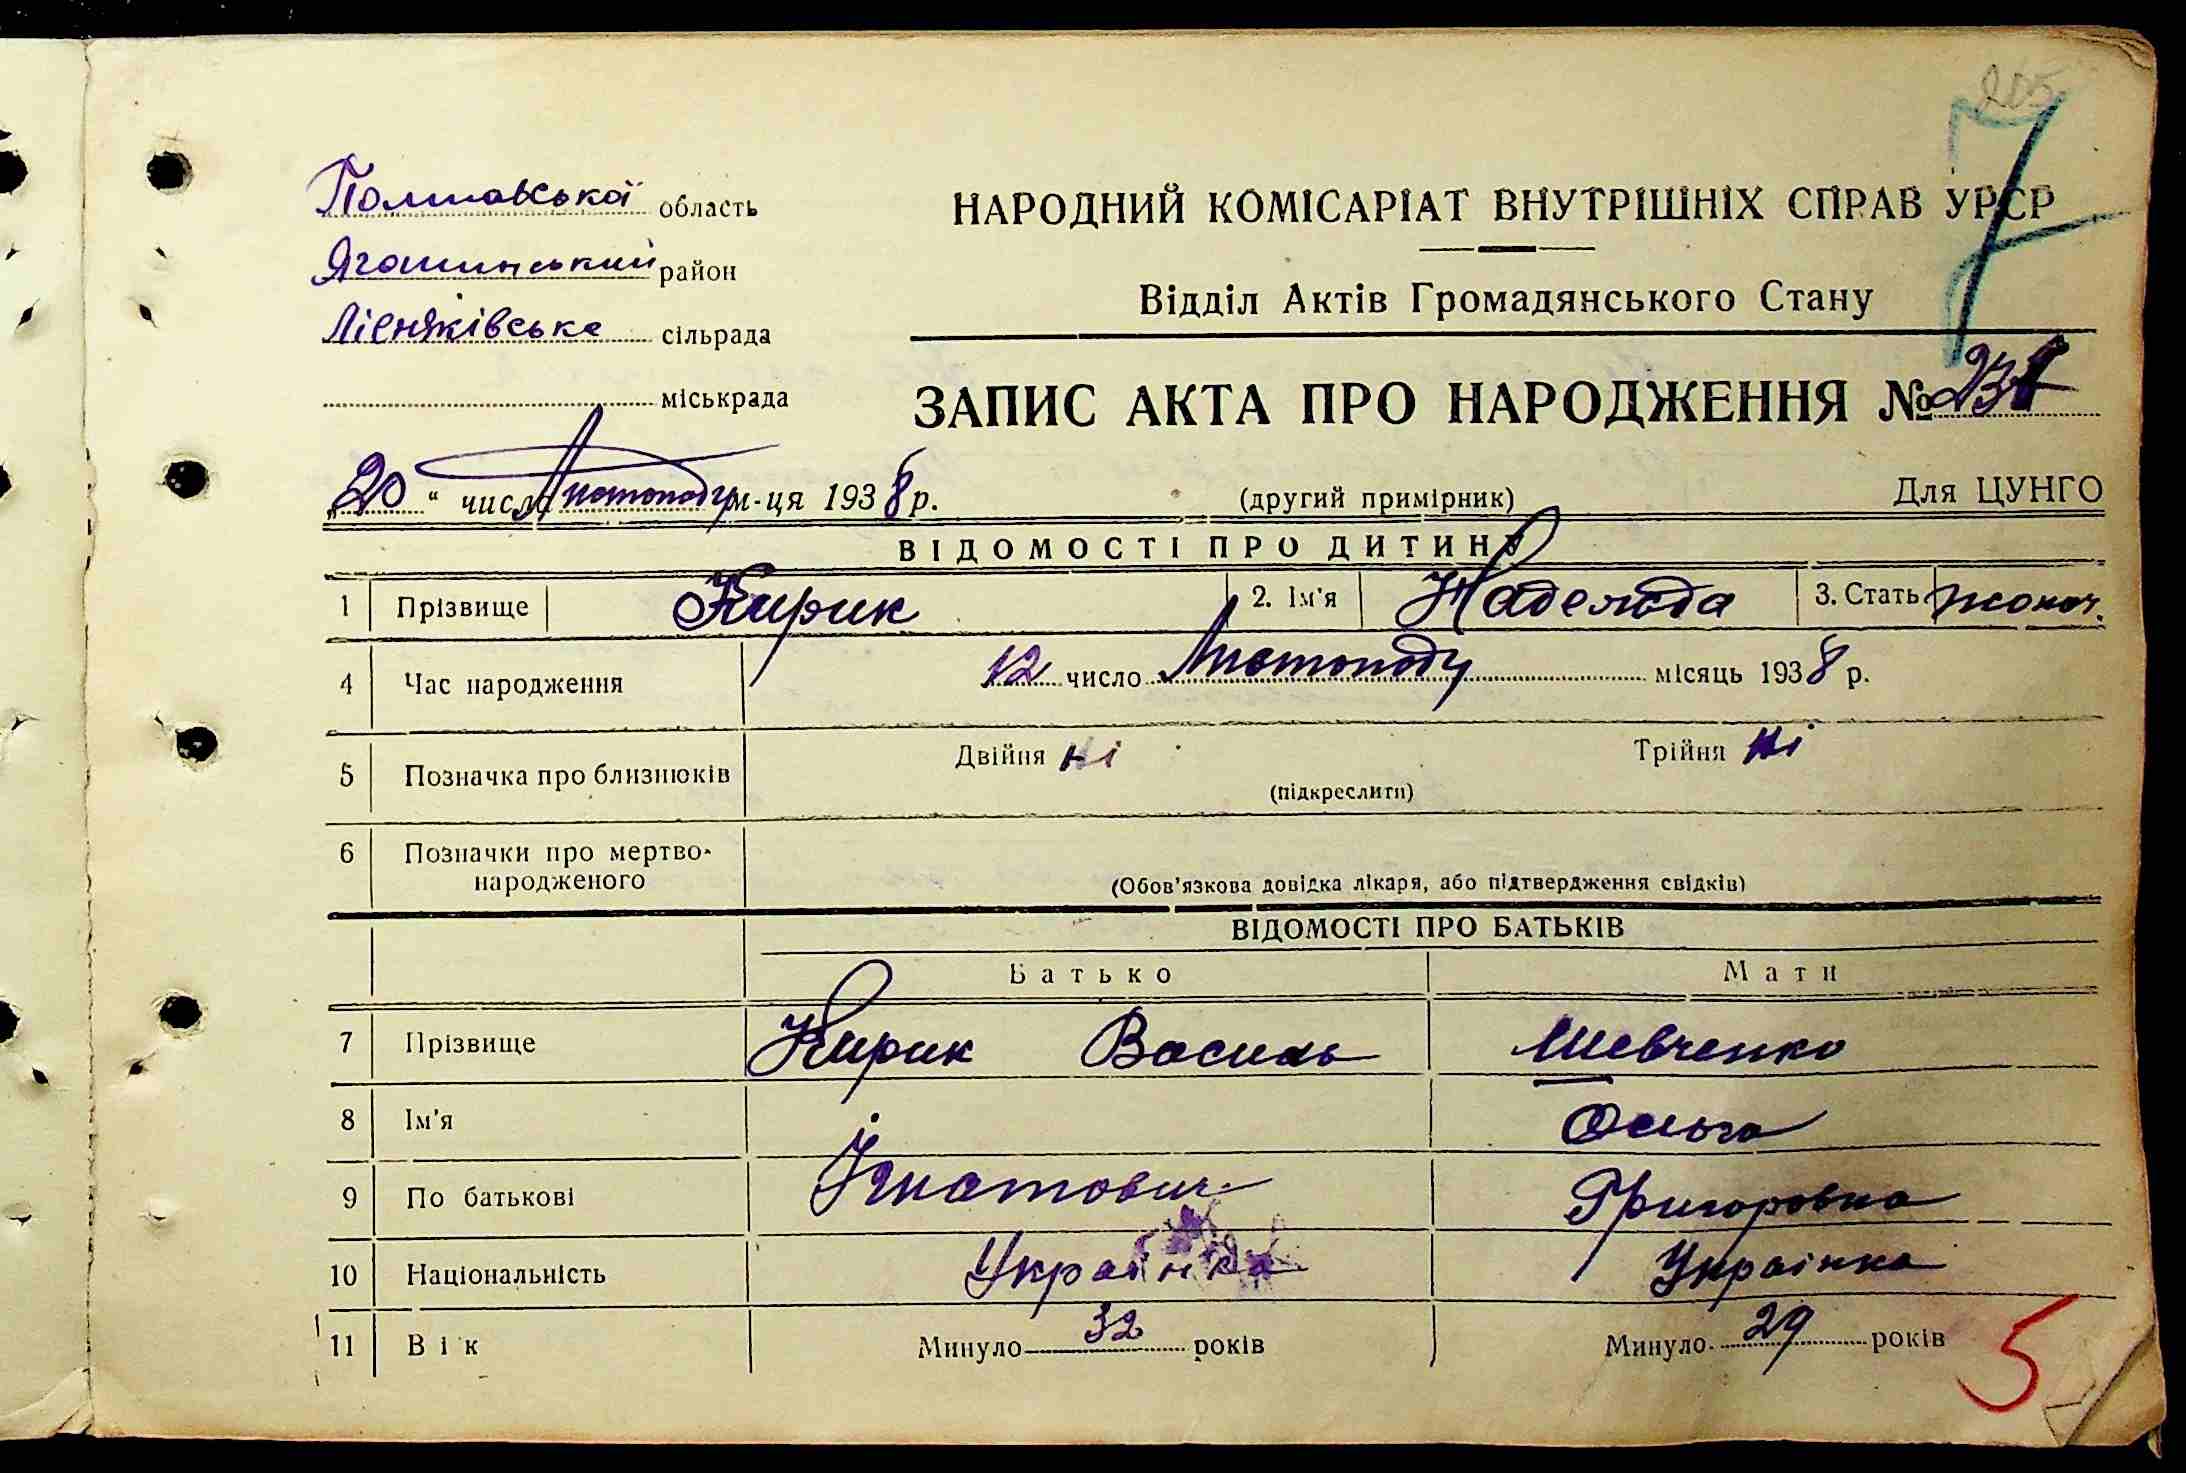 205
7
Полтавської область
НАРОДНИЙ КОМІСАРІАТ ВНУТРІШНІХ СПРАВ УРСР
Ягошинський район
Відділ Актів Громадянського Стану
сільрада
міськрада
ЗАПИС АКТА ПРО НАРОДЖЕННЯ №
„20“ число Листопаду м-ця 1938 р.
(другий примірник)
Для ЦУНГО
ВІДОМОСТІ ПРО ДИТИНУ
1 Прізвище Кирик 2. Ім'я Надежда 3. Стать жоноч.
4 Час народження 12 число Листопаду місяць 1938 р.
5 Позначка про близнюків Двійня ні Трійня ні
(підкреслити)
6 Позначки про мертво-
народженого
(Обов'язкова довідка лікаря, або підтвердження свідків)
ВІДОМОСТІ ПРО БАТЬКІВ
Батько Мати
7 Прізвище Кирик Василь Шевченко
8 Ім'я Ольга
9 По батькові Ігнатович Григоровна
10 Національність Українка Українка
11 Вік Минуло 32 років Минуло 29 років
5